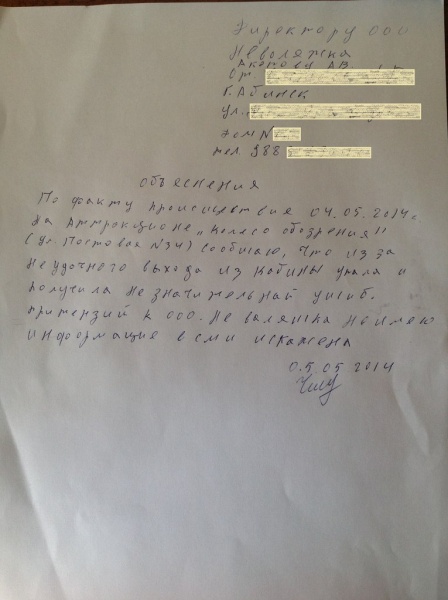 Директору ООО
Неволяжка
Акопову А.В.
от
г. Абинск
ул.
дом N
тел. 988
Объяснения
По факту происшествия 04.05.2014г.
на Аттракционе „Колесо обозрения"
(ул. Постовая №34) сообщаю, что из за
неудачного выхода из кабины упала и
получила не значительный ушиб.
притензий к ООО. Не валяшка не имею
информация в сми искажена
0.5.05 2014